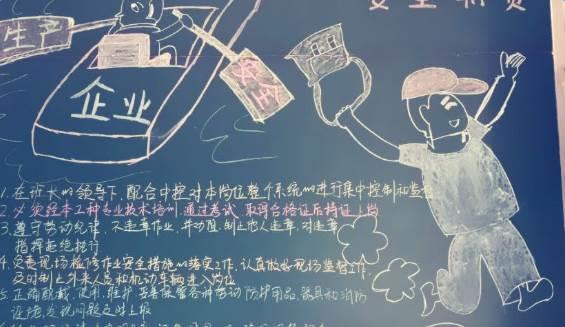 安全职责
生产
安全
企业
1.在班长的领导下,配合中控对本岗位整个系统的进行集中控制和监控
2.必须经本工种专业技术培训,通过考试,取得合格证后持证上岗
3.遵守劳动纪律,不违章作业,并劝阻、制止他人违章,对违章
指挥拒绝执行
4.负责现场检修作业安全措施的落实工作,认真做好现场监督工作,
及时制止外来人员和机动车辆进入岗位
5.正确配戴、使用、维护 保管各种劳动防护用品、器具和消防
设施,发现问题及时上报